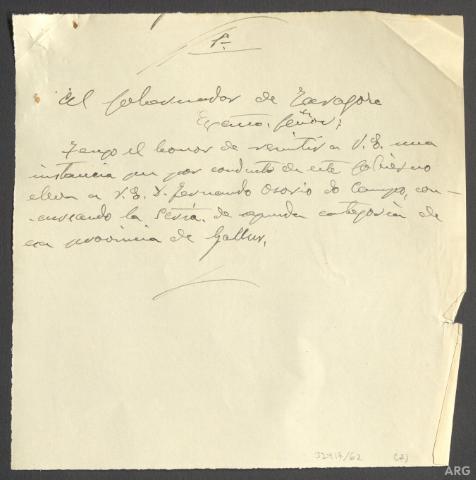 1º
Al Gobernador de Zaragoza
Excmo. Señor:
Tengo el honor de remitir a V.E. una
instancia que por conducto de este Gobierno
eleva a V.E. D. Fernando Osorio do Campo, con-
cursando la Sería. de segunda categoría de
esa provincia de Gallur.
32914/62 (2)
ARG